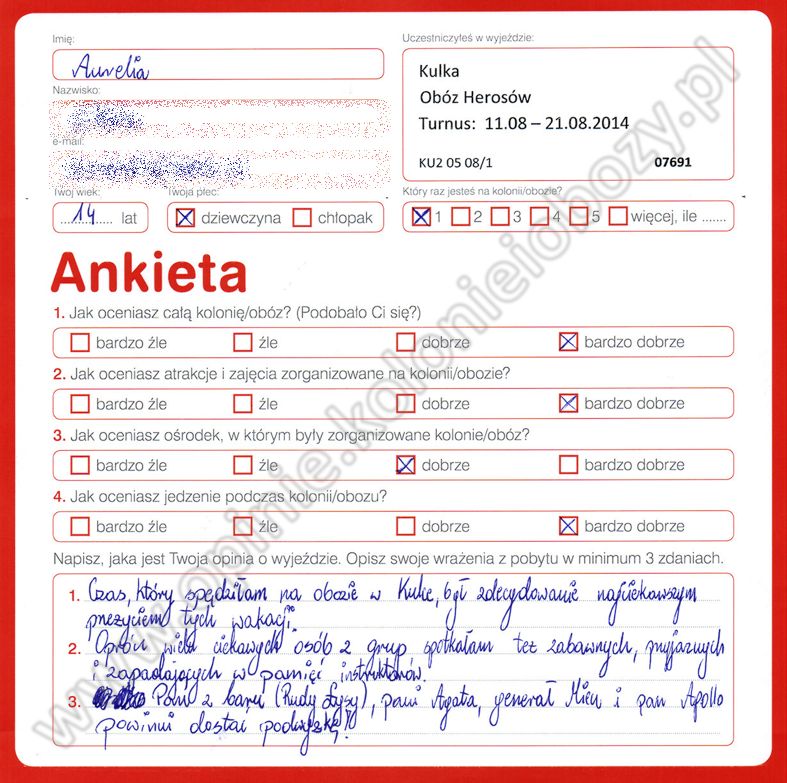 Imię:
Aurelia
Nazwisko:
e-mail:
Twój wiek:
14 lat
Twoja płeć:
dziewczyna chłopak
Uczestniczyłeś w wyjeździe:
Kulka
Obóz Herosów
Turnus: 11.08 – 21.08.2014
KU2 05 08/1 07691
Który raz jesteś na kolonii/obozie?
1 2 3 4 5 więcej, ile .......
Ankieta
1. Jak oceniasz całą kolonię/obóz? (Podobało Ci się?)
bardzo źle źle dobrze bardzo dobrze
2. Jak oceniasz atrakcje i zajęcia zorganizowane na kolonii/obozie?
bardzo źle źle dobrze bardzo dobrze
3. Jak oceniasz ośrodek, w którym były zorganizowane kolonie/obóz?
bardzo źle źle dobrze bardzo dobrze
4. Jak oceniasz jedzenie podczas kolonii/obozu?
bardzo źle źle dobrze bardzo dobrze
Napisz, jaka jest Twoja opinia o wyjeździe. Opisz swoje wrażenia z pobytu w minimum 3 zdaniach.
1. Czas, który spędziłam na obozie w Kulce, był zdecydowanie najciekawszym
przeżyciem tych wakacji.
2. Oprócz wielu ciekawych osób z grup spotkałam też zabawnych, przyjaznych
i zapadających w pamięć instruktorów.
3. Pan z baru (Rudy Łysy), pani Agata, generał Mieu i pan Apollo
powinni dostać podwyżkę!
www.opinie.kolonieiobozy.pl